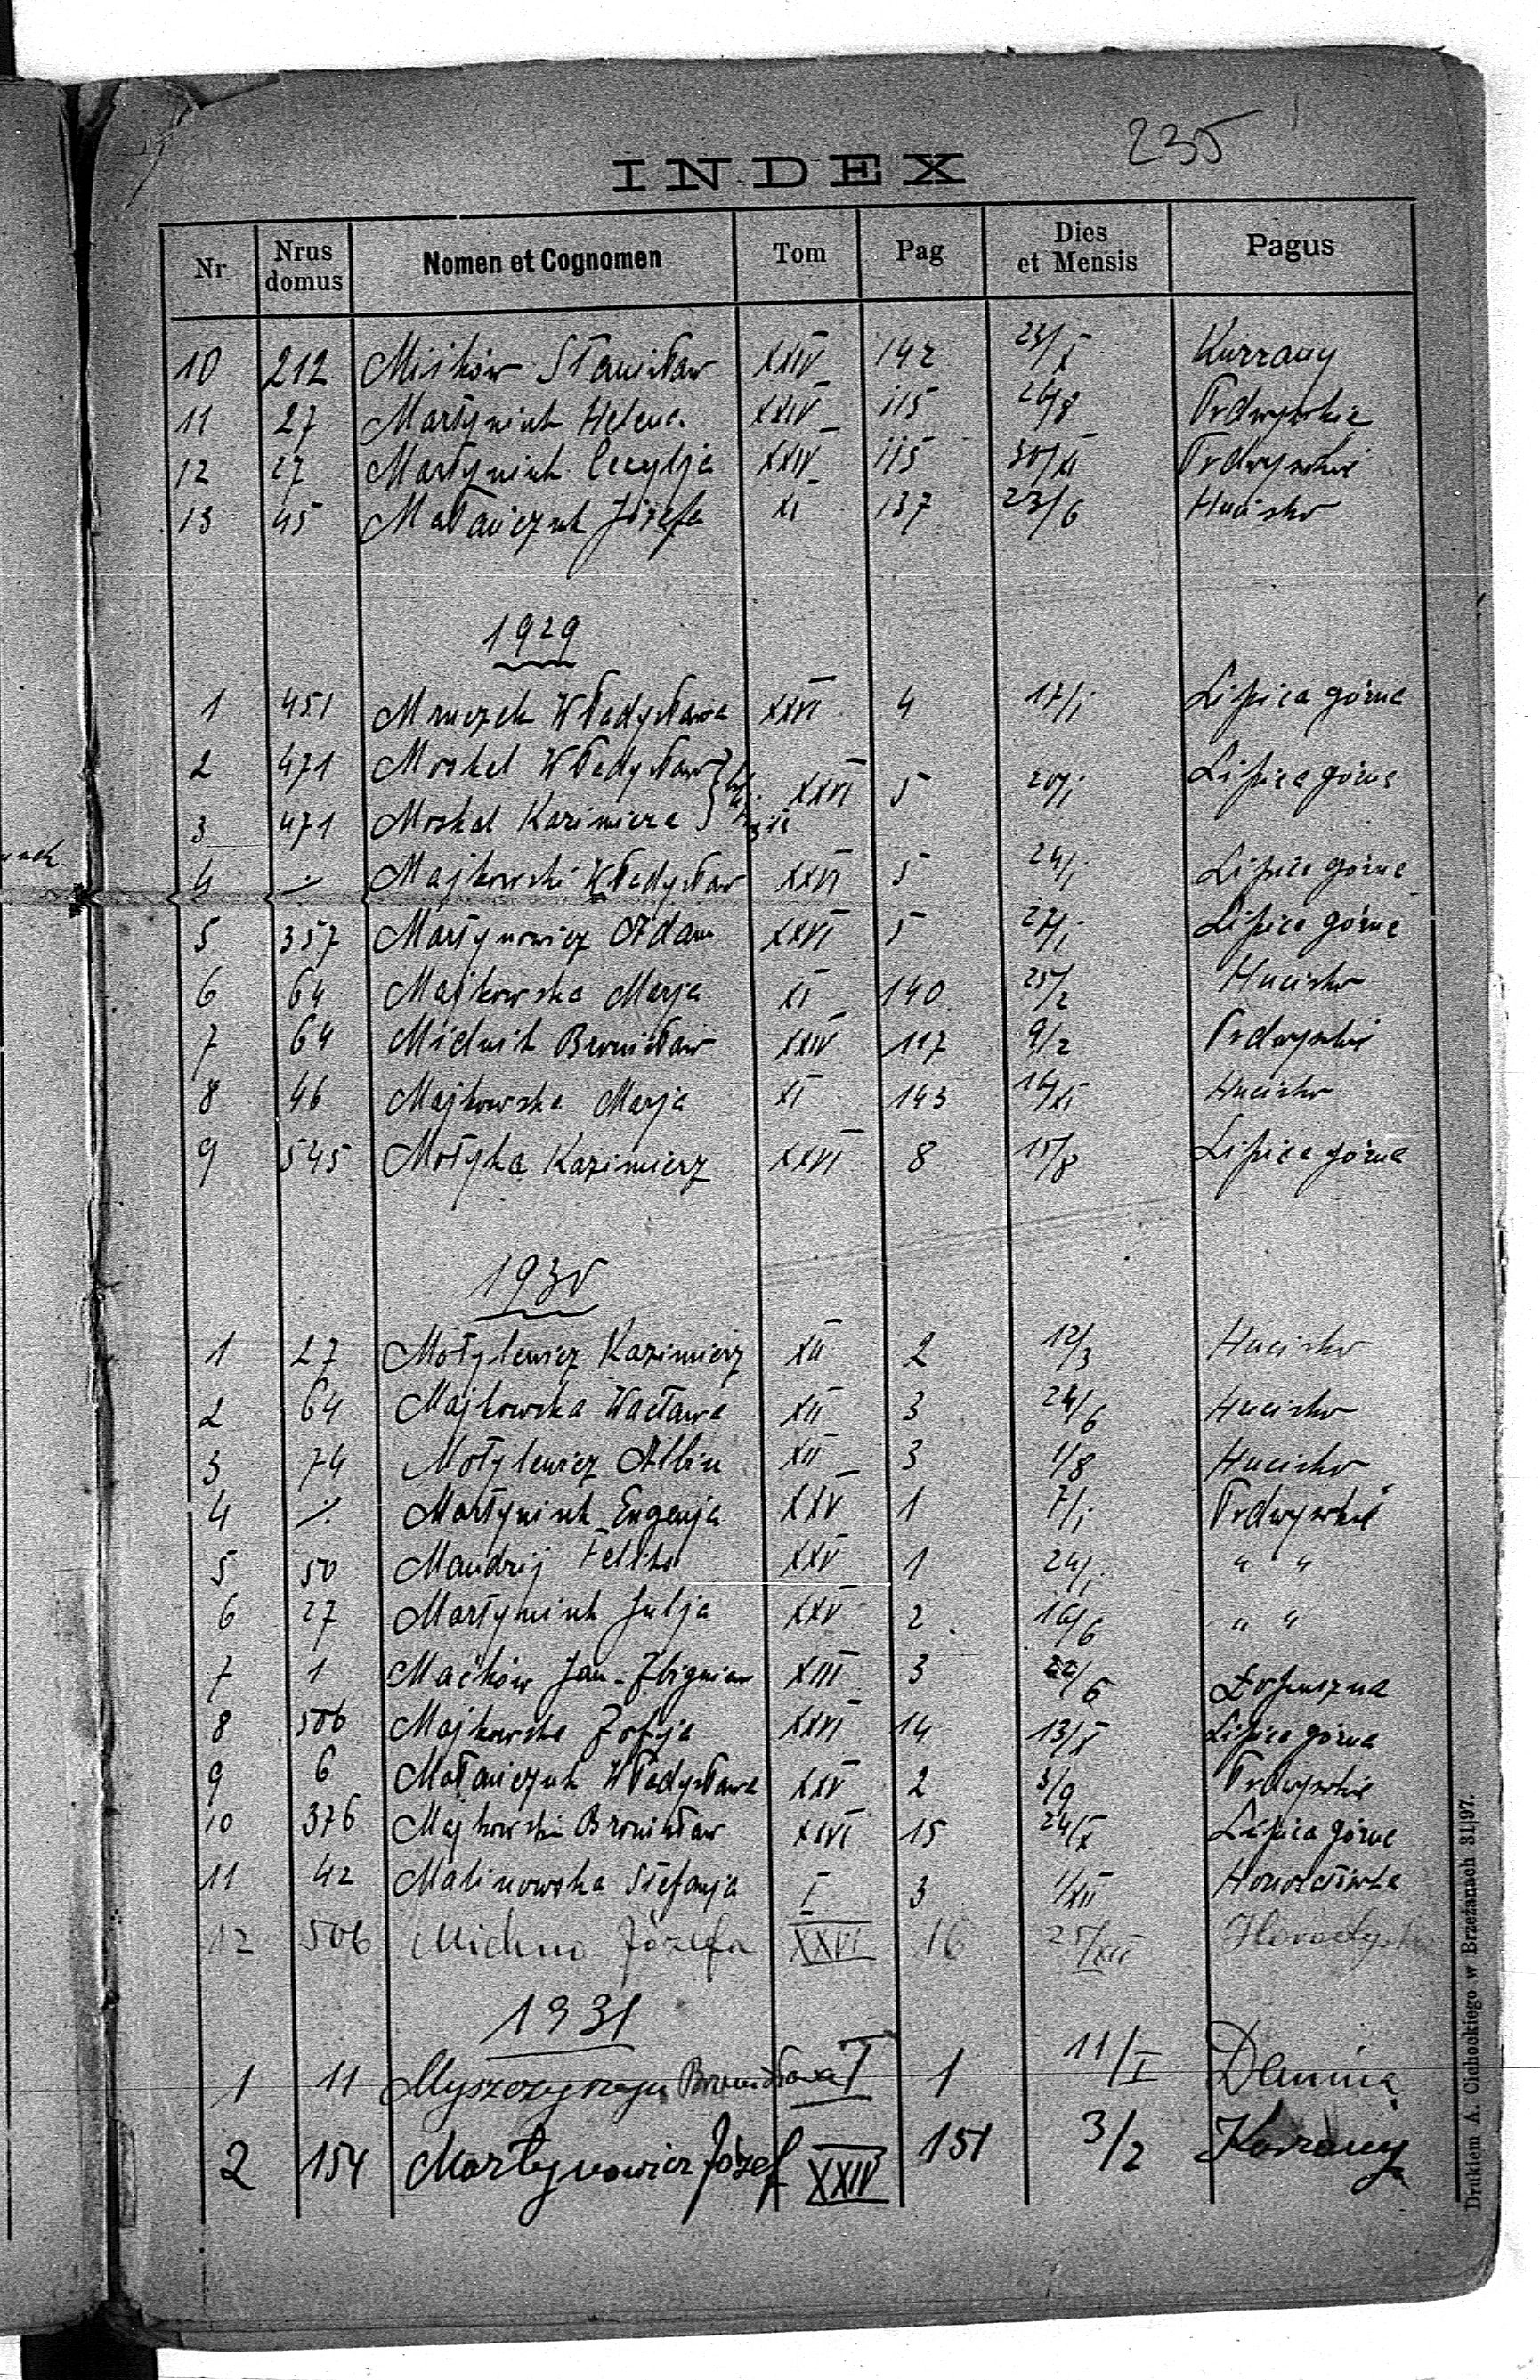 235
INDEX
Nr. Nrus domus Nomen et Cognomen Tom Pag Dies et Mensis Pagus
10 212 Miśków Stanisław XXIV 142 23/X Kurzany
11 27 Martyniuk Helena XXIV 115 26/8 Podwysokie
12 27 Martyniuk Cecylja XXIV 115 30/XI Podwysokie
13 45 Matańczuk Józefa XI 137 23/6 Hucisko
1929
1 451 Mruczek Władysława XXVI 4 17/I Lipica górna
2 471 Moskal Władysław XXVI 5 20/I Lipica górna
3 471 Moskal Kazimiera
4 ./. Majkowski Władysław XXVI 5 24/I Lipica górna
5 357 Martynowicz Adam XXVI 5 27/I Lipica górna
6 64 Majkowska Marja XI 140 25/2 Hucisko
7 64 Midnik Bronisław XXIV 117 9/2 Podwysokie
8 46 Majkowska Marja XI 143 16/XI Hucisko
9 545 Motyka Kazimierz XXVI 8 15/8 Lipica górna
1930
1 27 Motylewicz Kazimierz XII 2 12/3 Hucisko
2 64 Majkowska Wacława XII 3 24/6 Hucisko
3 74 Motylewicz Albin XII 3 1/8 Hucisko
4 ./. Martyniuk Eugenja XXV 1 7/I Podwysokie
5 50 Mandzij Feliks XXV 1 24/I " "
6 27 Martyniuk Julja XXV 2 16/6 " "
7 1 Maćków Jan-Zbigniew XIII 3 22/6 Łopuszna
8 506 Majkowska Zofja XXVI 14 13/X Lipica górna
9 6 Matańczuk Władysława XXV 2 3/9 Podwysokie
10 376 Majkowski Bronisław XXVI 15 24/X Lipica górna
11 42 Malinowska Stefanja I 3 1/XII
12 506 Michno Józefa XXVI 16 25/XII
1931
1 11 Bronisława I 1 11/I Demnia
2 154 Martynowicz Józef XXIV 151 3/2 Kurzany
Drukiem A. Cichockiego w Brzeżanach 31/97.